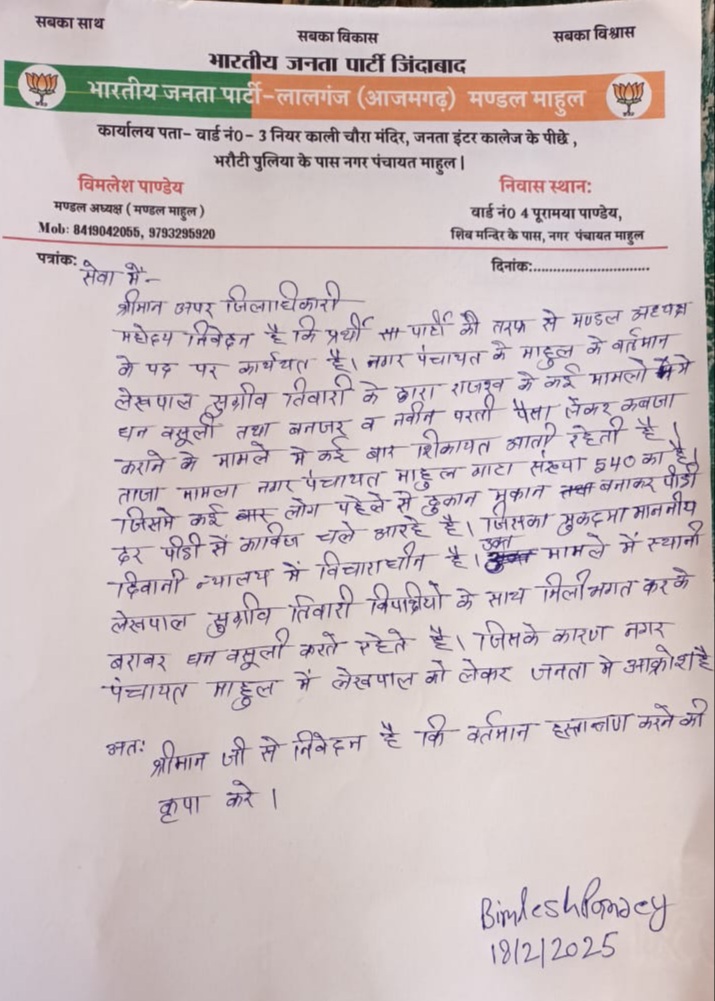 सबका साथ
सबका विकास
सबका विश्वास
भारतीय जनता पार्टी जिंदाबाद
भारतीय जनता पार्टी-लालगंज (आजमगढ़) मण्डल माहुल
कार्यालय पता- वार्ड नं0- 3 नियर काली चौरा मंदिर, जनता इंटर कालेज के पीछे ,
भरौटी पुलिया के पास नगर पंचायत माहुल।
विमलेश पाण्डेय
मण्डल अध्यक्ष ( मण्डल माहुल )
Mob: 8419042055, 9793295920
निवास स्थान:
वार्ड नं0 4 पूरामया पाण्डेय,
शिव मन्दिर के पास, नगर पंचायत माहुल
पत्रांक:
दिनांक:..............................
सेवा में-
श्रीमान अपर जिलाधिकारी
महोदय निवेदन है कि प्रार्थी भा पार्टी की तरफ से मण्डल अध्यक्ष
के पद पर कार्यरत है। नगर पंचायत के माहुल के वर्तमान
लेखपाल सुग्रीव तिवारी के द्वारा राजस्व के कई मामलो मे
धन वसूली तथा बनजर व नवीन परती पैसा लेकर कबजा
कराने के मामले मे कई बार शिकायत आती रहेती है।
ताजा मामला नगर पंचायत माहुल गाटा संख्या 540 का है।
जिसमे कई लोग पहेले से दुकान मुकान बनाकर पीडी
दर पीडी से काबिज चले आरहे है। जिसका मुकदमा माननीय
दिवानी न्यालय में विचाराधीन है। उक्त मामले में स्थानी
लेखपाल सुग्रीव तिवारी विपाक्षीयो के साथ मिलीभगत करके
बराबर धन वसूली करते रहेते है। जिसके कारण नगर
पंचायत माहुल में लेखपाल को लेकर जनता मे आक्रोश है
अतः श्रीमान जी से निवेदन है कि वर्तमान करने की
कृपा करे।
Bimlesh Pandey
18/2/2025